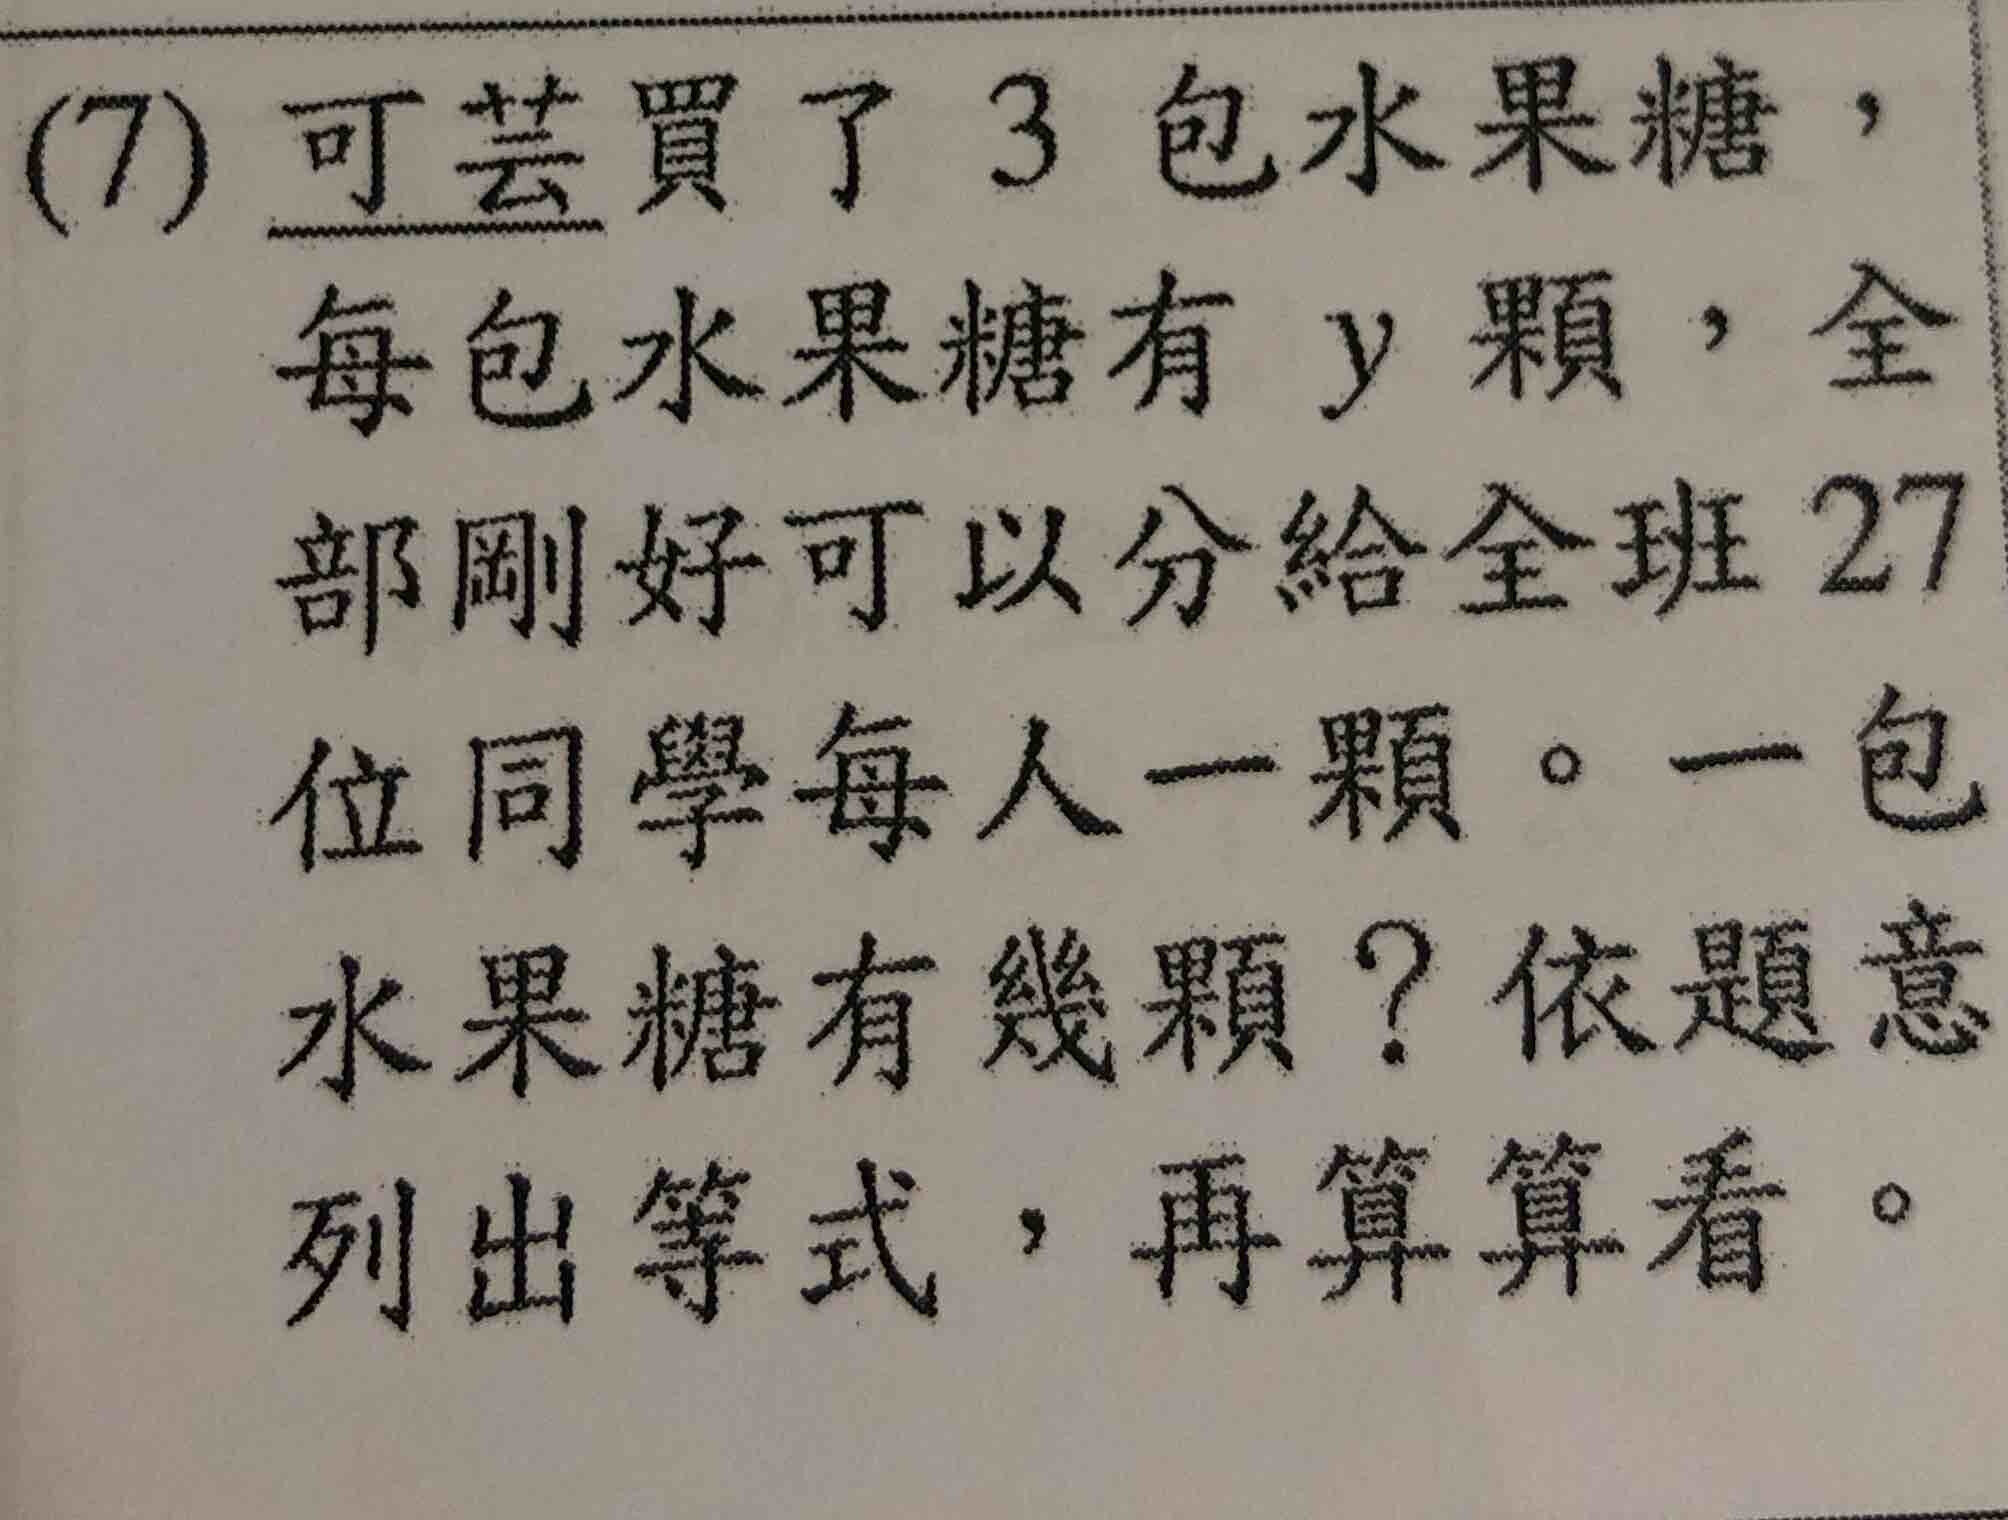 (7) 可芸買了 3 包水果糖，
每包水果糖有 y 顆，全
部剛好可以分給全班 27
位同學每人一顆。一包
水果糖有幾顆？依題意
列出等式，再算算看。